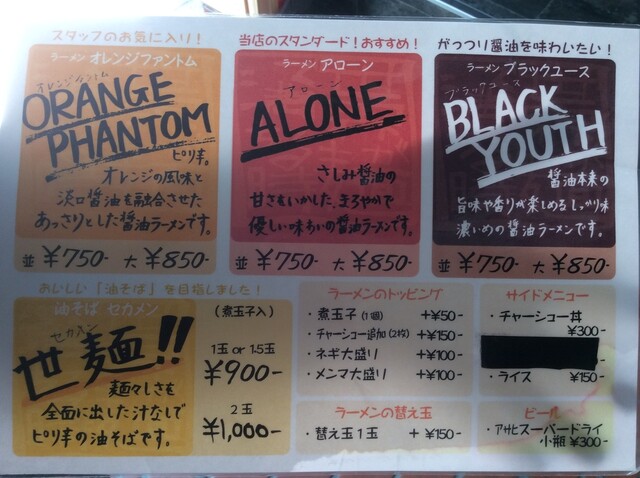 スタッフのお気に入り!
ラーメン オレンジファントム
オレンジファントム
ORANGE
PHANTOM
ピリ辛。
オレンジの風味と
淡口醤油を融合させた
あっさりとした醤油ラーメンです。
並 ¥750- 大 ¥850-
当店のスタンダード!おすすめ!
ラーメン アローン
アローン
ALONE
さしみ醤油の
甘さをいかした、まろやかで
優しい味わいの醤油ラーメンです。
並 ¥750- 大 ¥850-
がっつり醤油を味わいたい!
ラーメン ブラックユース
ブラックユース
BLACK
YOUTH
醤油本来の
旨味や香りが楽しめる しっかり味
濃いめの醤油ラーメンです。
並 ¥750- 大 ¥850-
おいしい「油そば」を目指しました!
油そば セカメン
セカメン
世麺!!
麺々しさを
全面に出した汁なしで
ピリ辛の油そばです。
(煮玉子入)
1玉 or 1.5玉
¥900-
2玉
¥1,000-
ラーメンのトッピング
・煮玉子(1個) +¥50-
・チャーシュー追加(2枚) +¥150-
・ネギ大盛り +¥100-
・メンマ大盛り +¥100-
ラーメンの替え玉
・替え玉1玉 + ¥150-
サイドメニュー
・チャーシュー丼
¥300-
・ライス ¥150-
ビール
・アサヒスーパードライ
小瓶 ¥300-